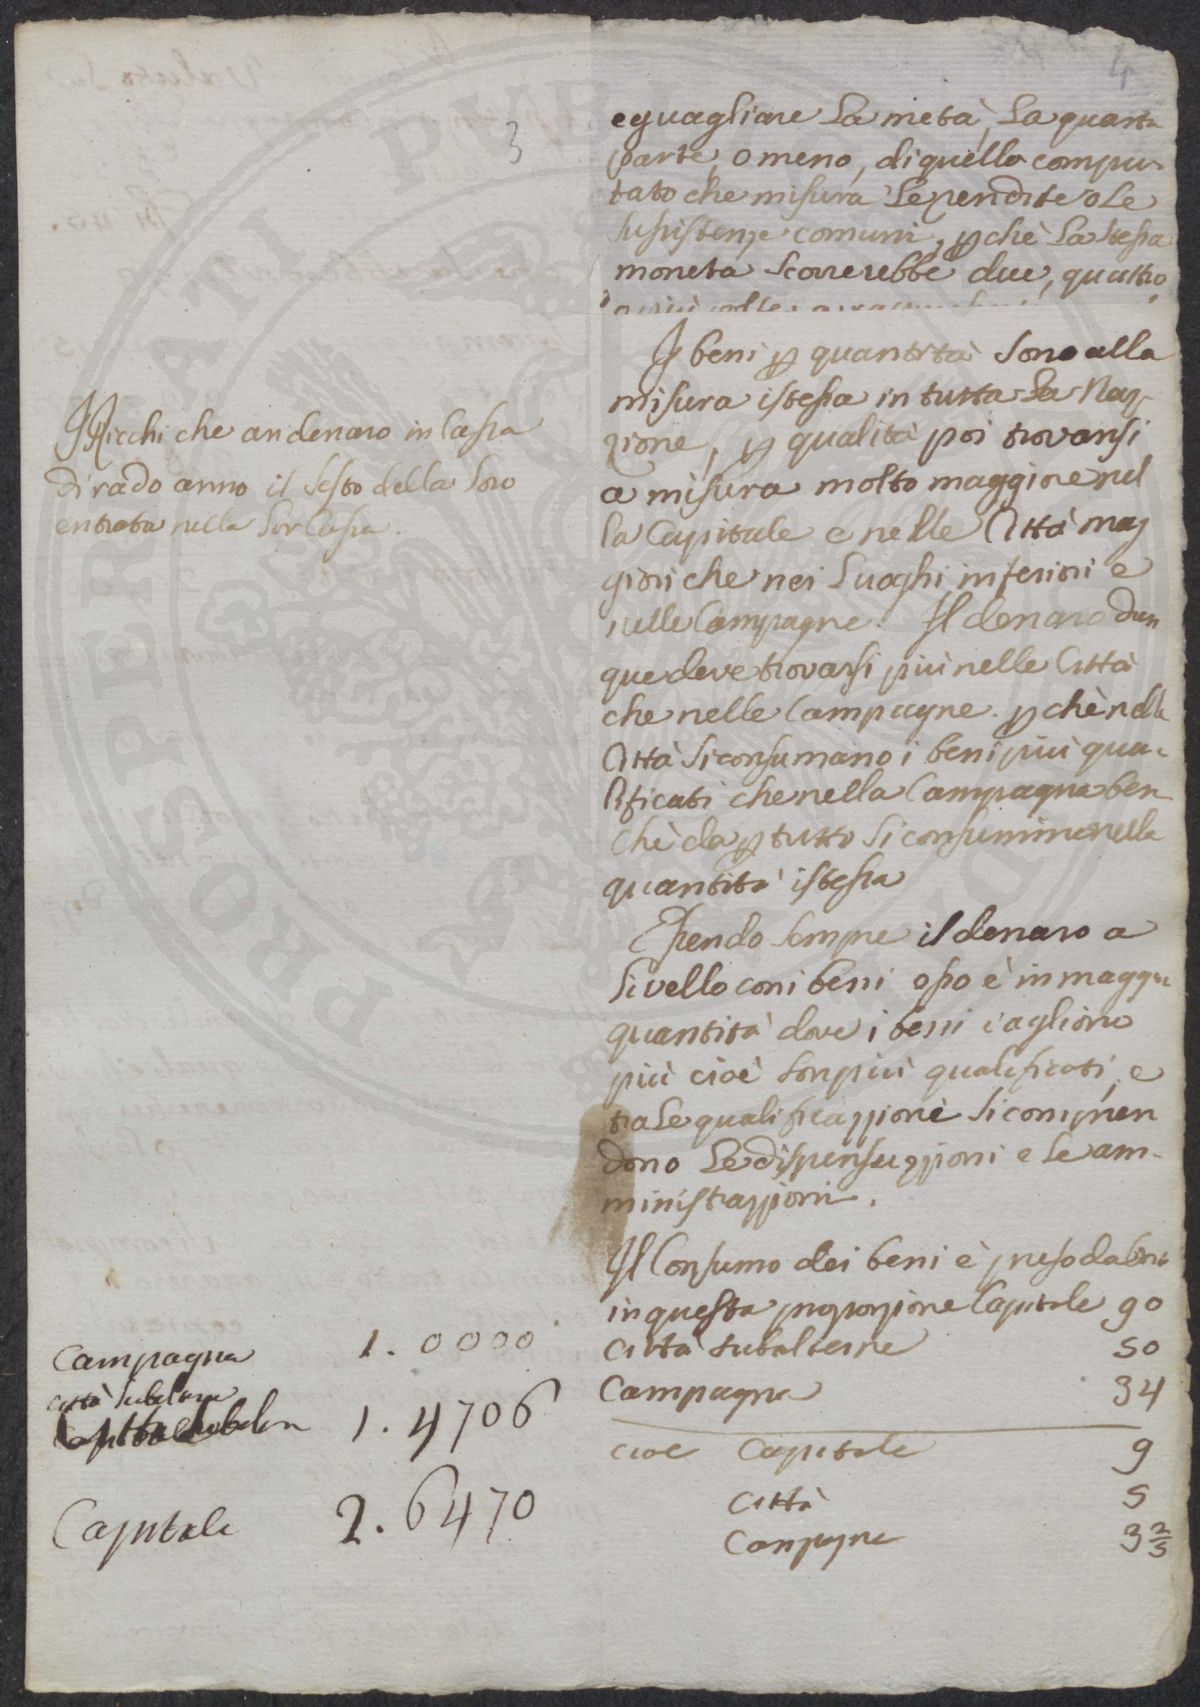 4
3
eguagliare la metà, la quarta
parte, o meno, di quello compu-
tato che misura le rendite o le
susistenze comuni, pchè la stessa
moneta scorrerebbe due, quattro,
I beni p quantità sono alla
misura istessa in tutta la Naz-
zione, p qualità poi trovansi
a misura molto maggiore nel
la Capitale e nelle Città mag
giori che nei Luoghi inferiori e
nelle Campagne. Il denaro dun
que deve trovarsi più nelle Città
che nelle Campagne. pchè nelle
Città si consumano i beni più qua-
lificati che nella Campagna ben
chè da p tutto si consumino nella
quantità istessa
Essendo sempre il denaro a
livello con i beni esso è in maggr
quantità dove i beni vagliono
più cioè son più qualificati, e
tra le qualificazzione si compren
dono le dispensazzioni e le am-
ministrazzioni.
Il Consumo dei beni è preso da
in questa proporzione Capitale 90
Città subalterne 50
Campagna 34
cioè Capitale 9
Città 5
Campagne 3 2/5
I Ricchi che an denaro in Cassa
di rado anno il sesto della loro
entrata nella lor Cassa.
Campagna 1. 0000
Città subalterne
1. 4706
Capitale 2. 6470
PROSPERITATI PUBL